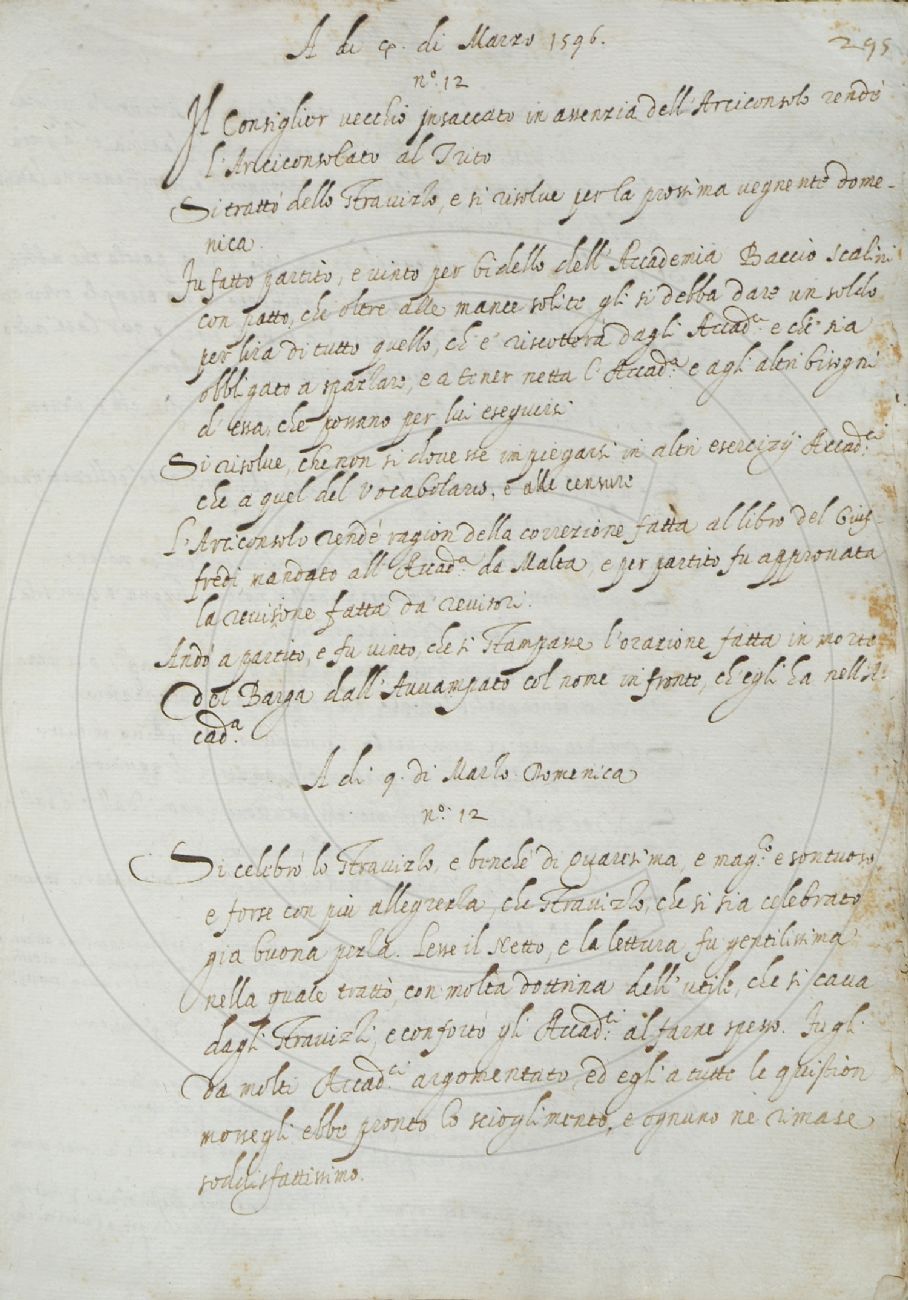 A di 4. di Marzo 1596.
295
n.º 12
Il Consiglier vecchio insaccato in assenzia dell'Arciconsolo rendé
l'Arciconsolato al Trito
Si trattò dello Stravizzo, e si risolve per la prossima vegnente dome-
nica.
Fu fatto partito, e vinto per bidello dell'Accademia Baccio Scalini
con patto, che oltre alle mance solite gli si debba dare un soldo
per lira di tutto quello, ch'e' riscoterà dagli Accad.ci e che sia
obbligato a spazlare, e a tener netta l'Accad.a e agli altri bisogni
d'essa, che possano per lui eseguirsi
Si risolve, che non si dovesse impiegarsi in altri esercizij Accad.ci
che a quel del Vocabolario, e alle censure
L'Arciconsolo rendé ragion della correzione fatta al libro del Gius-
fredi, mandato all'Accad.a da Malta, e per partito fu approvata
la revisione fatta da' revisori.
Andò a partito, e fu vinto, che si stampasse l'orazione fatta in morte
del Barga dall'Avvampato col nome in fronte, ch'egli ha nell'Ac-
cad.a
A di 9. di Marzo Domenica
n.º: 12
Si celebrò lo Stravizzo, e benché di Quaresima, e mag.co e sontuoso
e forse con più allegrezza, che Stravizzo, che si sia celebrato
già buona pezza. Lesse il Netto, e la lettura fu gentilissima
nella quale trattò, con molta dottrina dell'utile, che si cava
dagli Stravizzi, e confortò gli Accad.ci al farne spesso. Fugli
da molti Accad.ci argomentato, ed egli a tutte le quistion
mossegli ebbe pronto lo scioglimento, e ognuno ne rimase
soddisfattissimo.